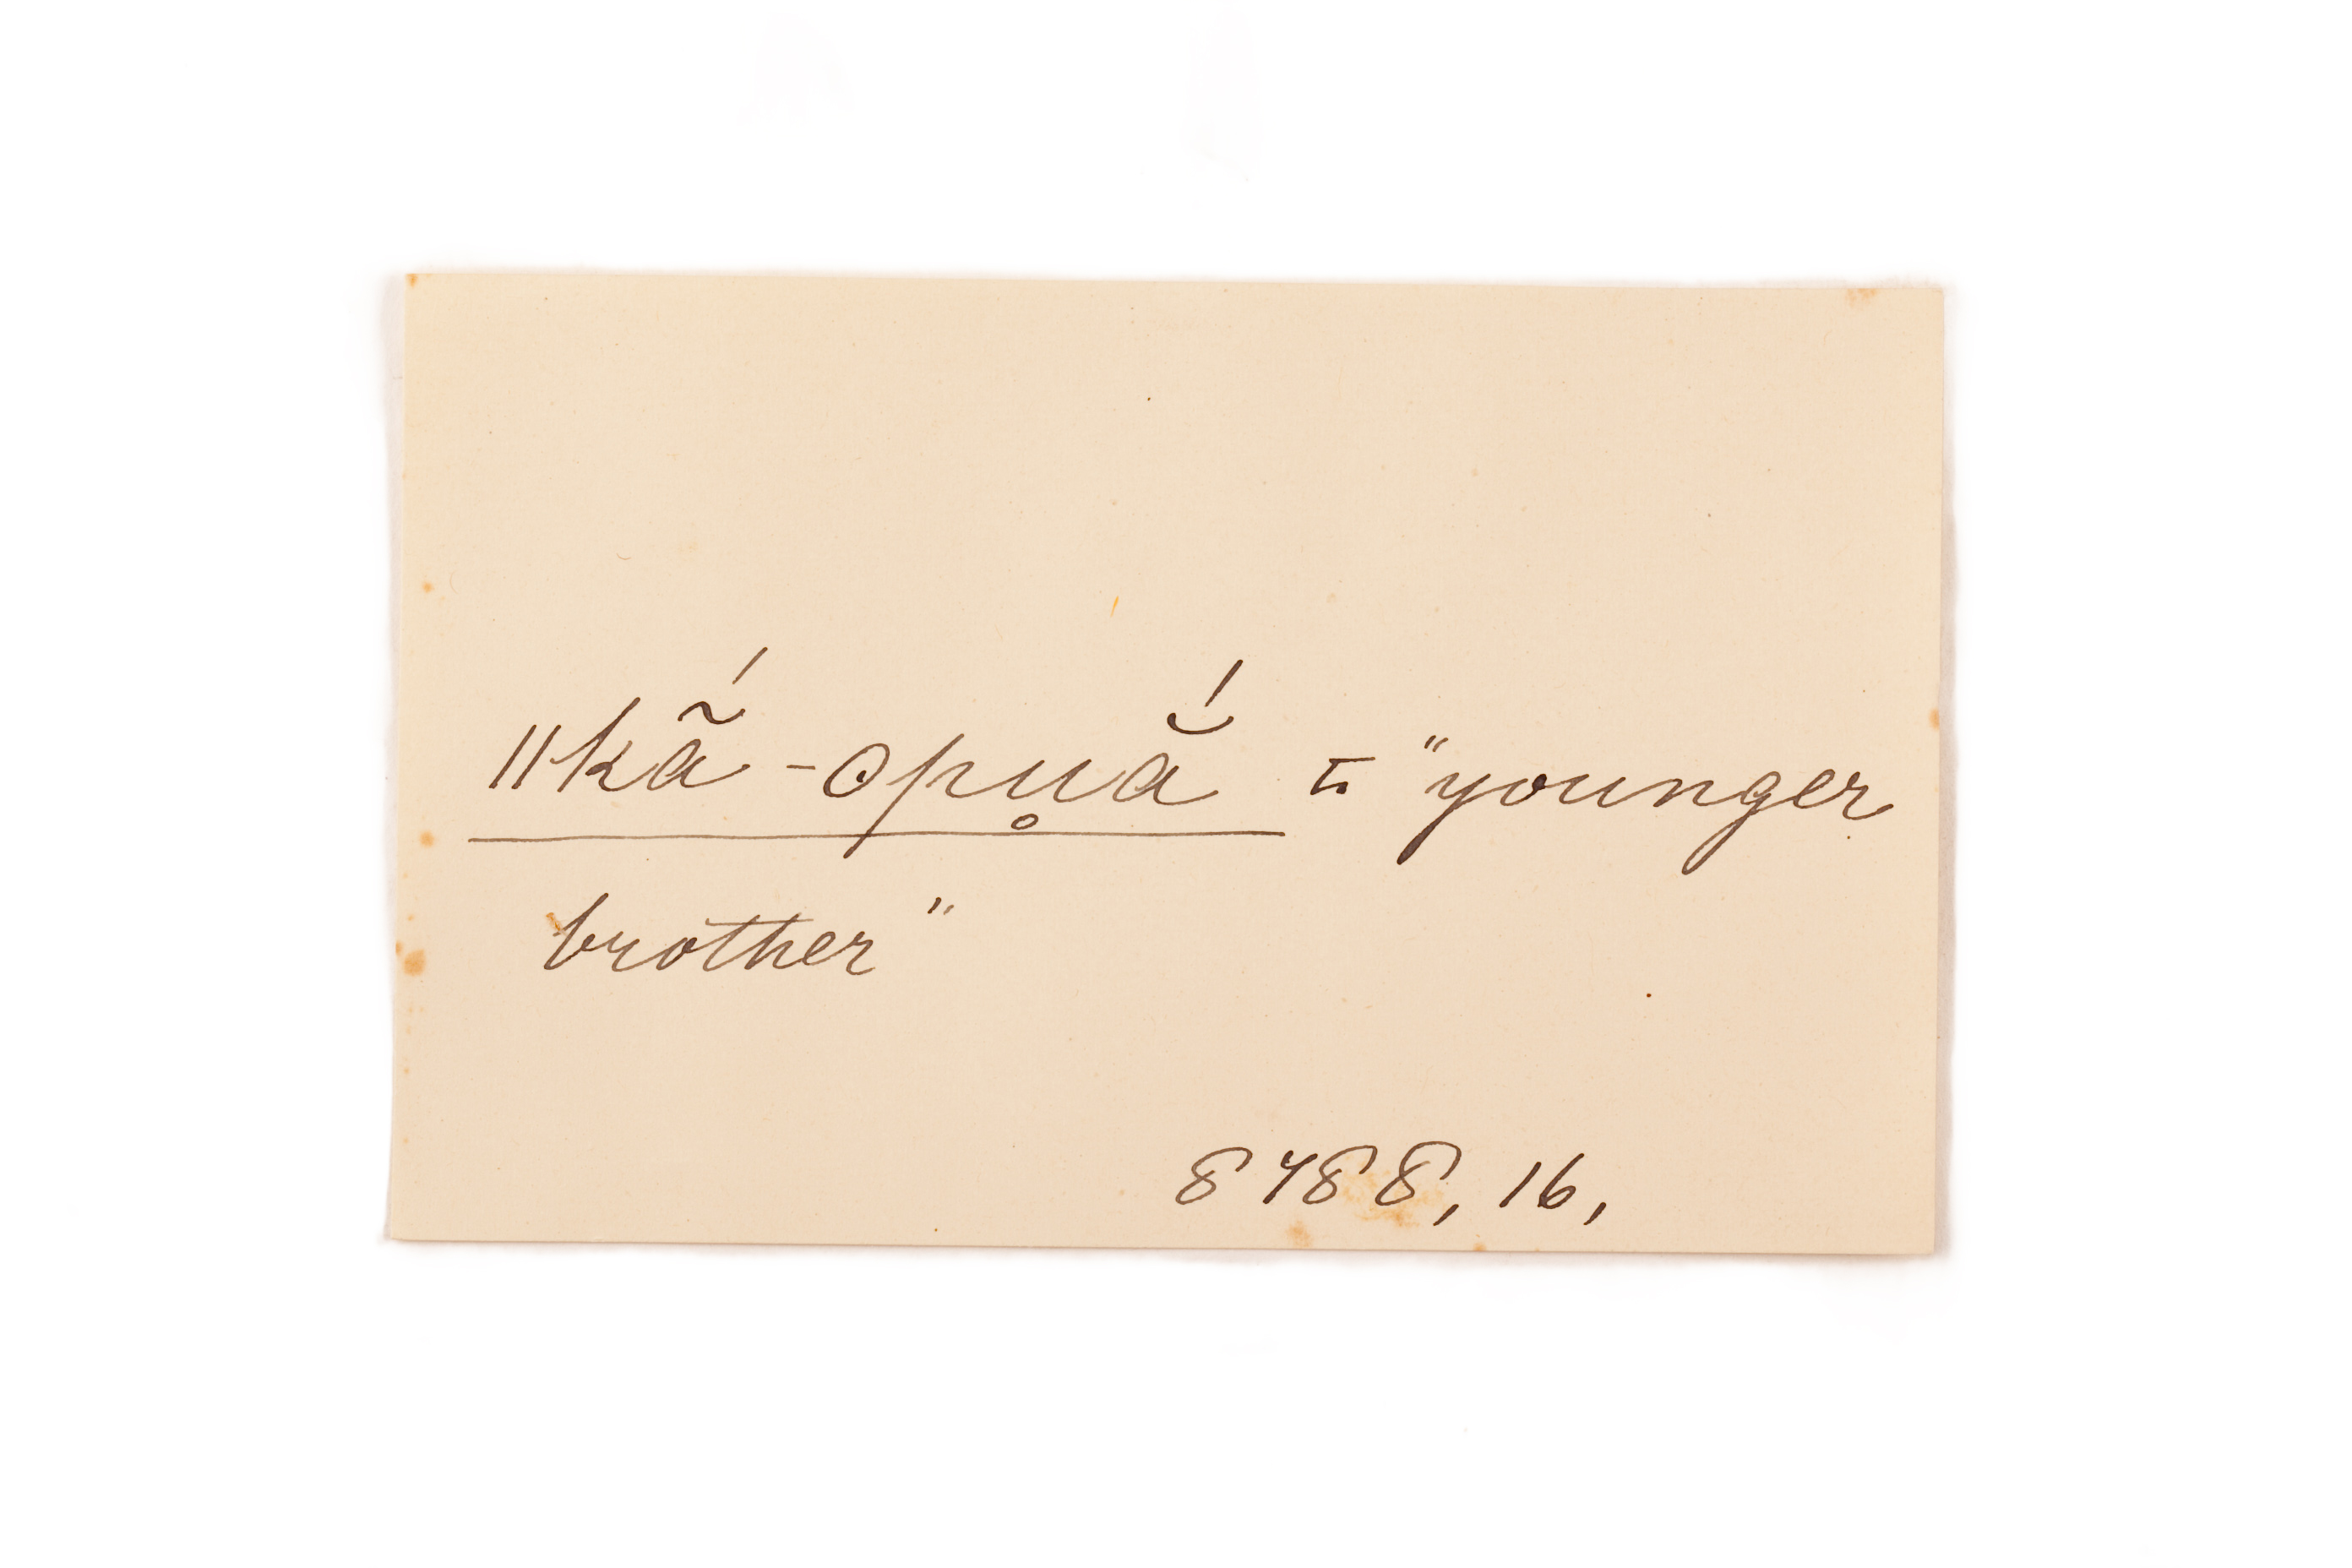 ǁkã́-opu̥ắ = "younger
brother"
8488, 16,